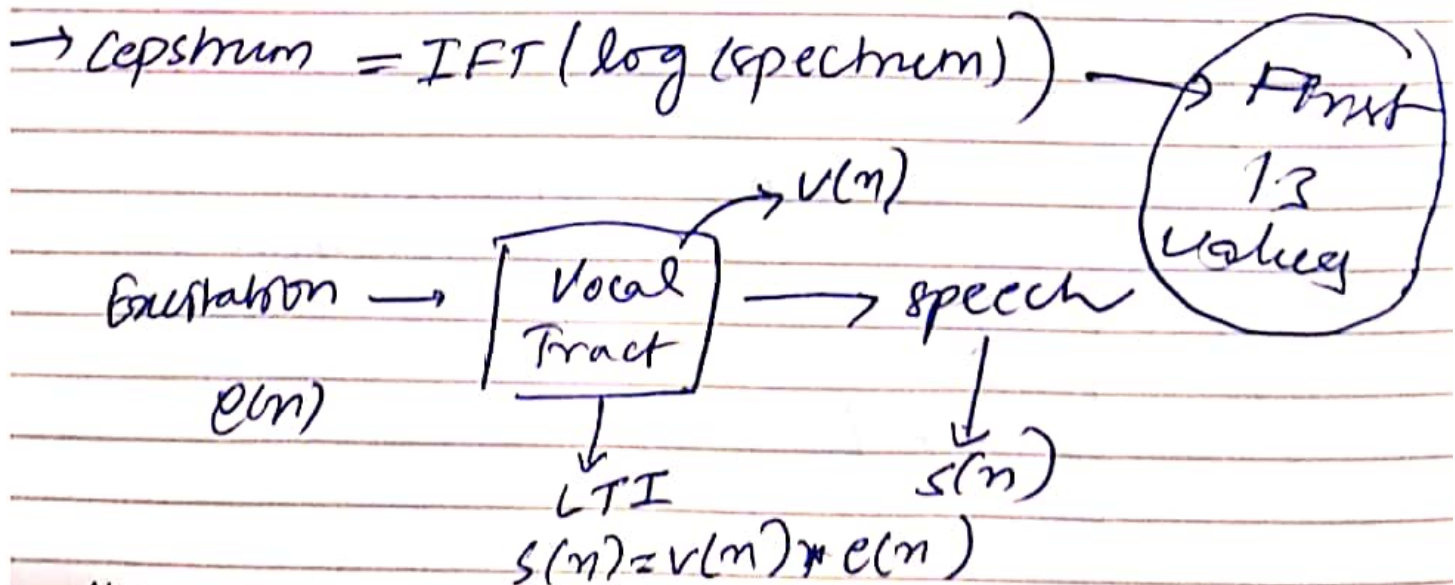 → Cepstrum = IFT (log (spectrum)) → First
13
values
v(n)
Excitation → Vocal Tract → speech
e(n)
LTI
s(n)
s(n) = v(n) * e(n)